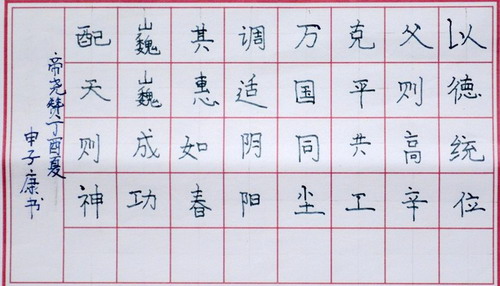 以德统位
父则高辛
克平共工
万国同尘
调适阴阳
其惠如春
巍巍成功
配天则神
帝尧赞丁酉夏
申子康书